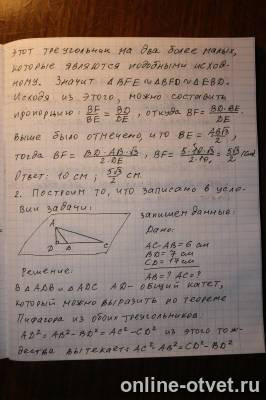 этот треугольник на два более малых,
которые являются подобными исход-
ному. Значит ∆BFE ∾ ∆BFD ∾ ∆EBD.
Исходя из этого, можно составить
пропорцию: BF/BE = BD/DE, откуда BF = BD·BE/DE.
Выше было отмечено, что BE = AB√3/2,
тогда BF = BD·AB·√3/2·DE, BF = 5·10·√3/2·10 = 5√3/2 (см)
Ответ: 10 см; 5√3/2 см.
2. Построим то, что записано в усло-
вии задачи:
запишем данные:
A
D B C
Дано:
AC-AB=6 см
BD = 7 см
CD = 17 см
AB=? AC=?
Решение:
В ∆ADB и ∆ADC AD- общий катет,
который можно выразить по теореме
Пифагора из обоих треугольников.
AD²=AB²-BD²=AC²-CD² из этого тож-
дества вытекает: AC²-AB²=CD²-BD²
online-otvet.ru